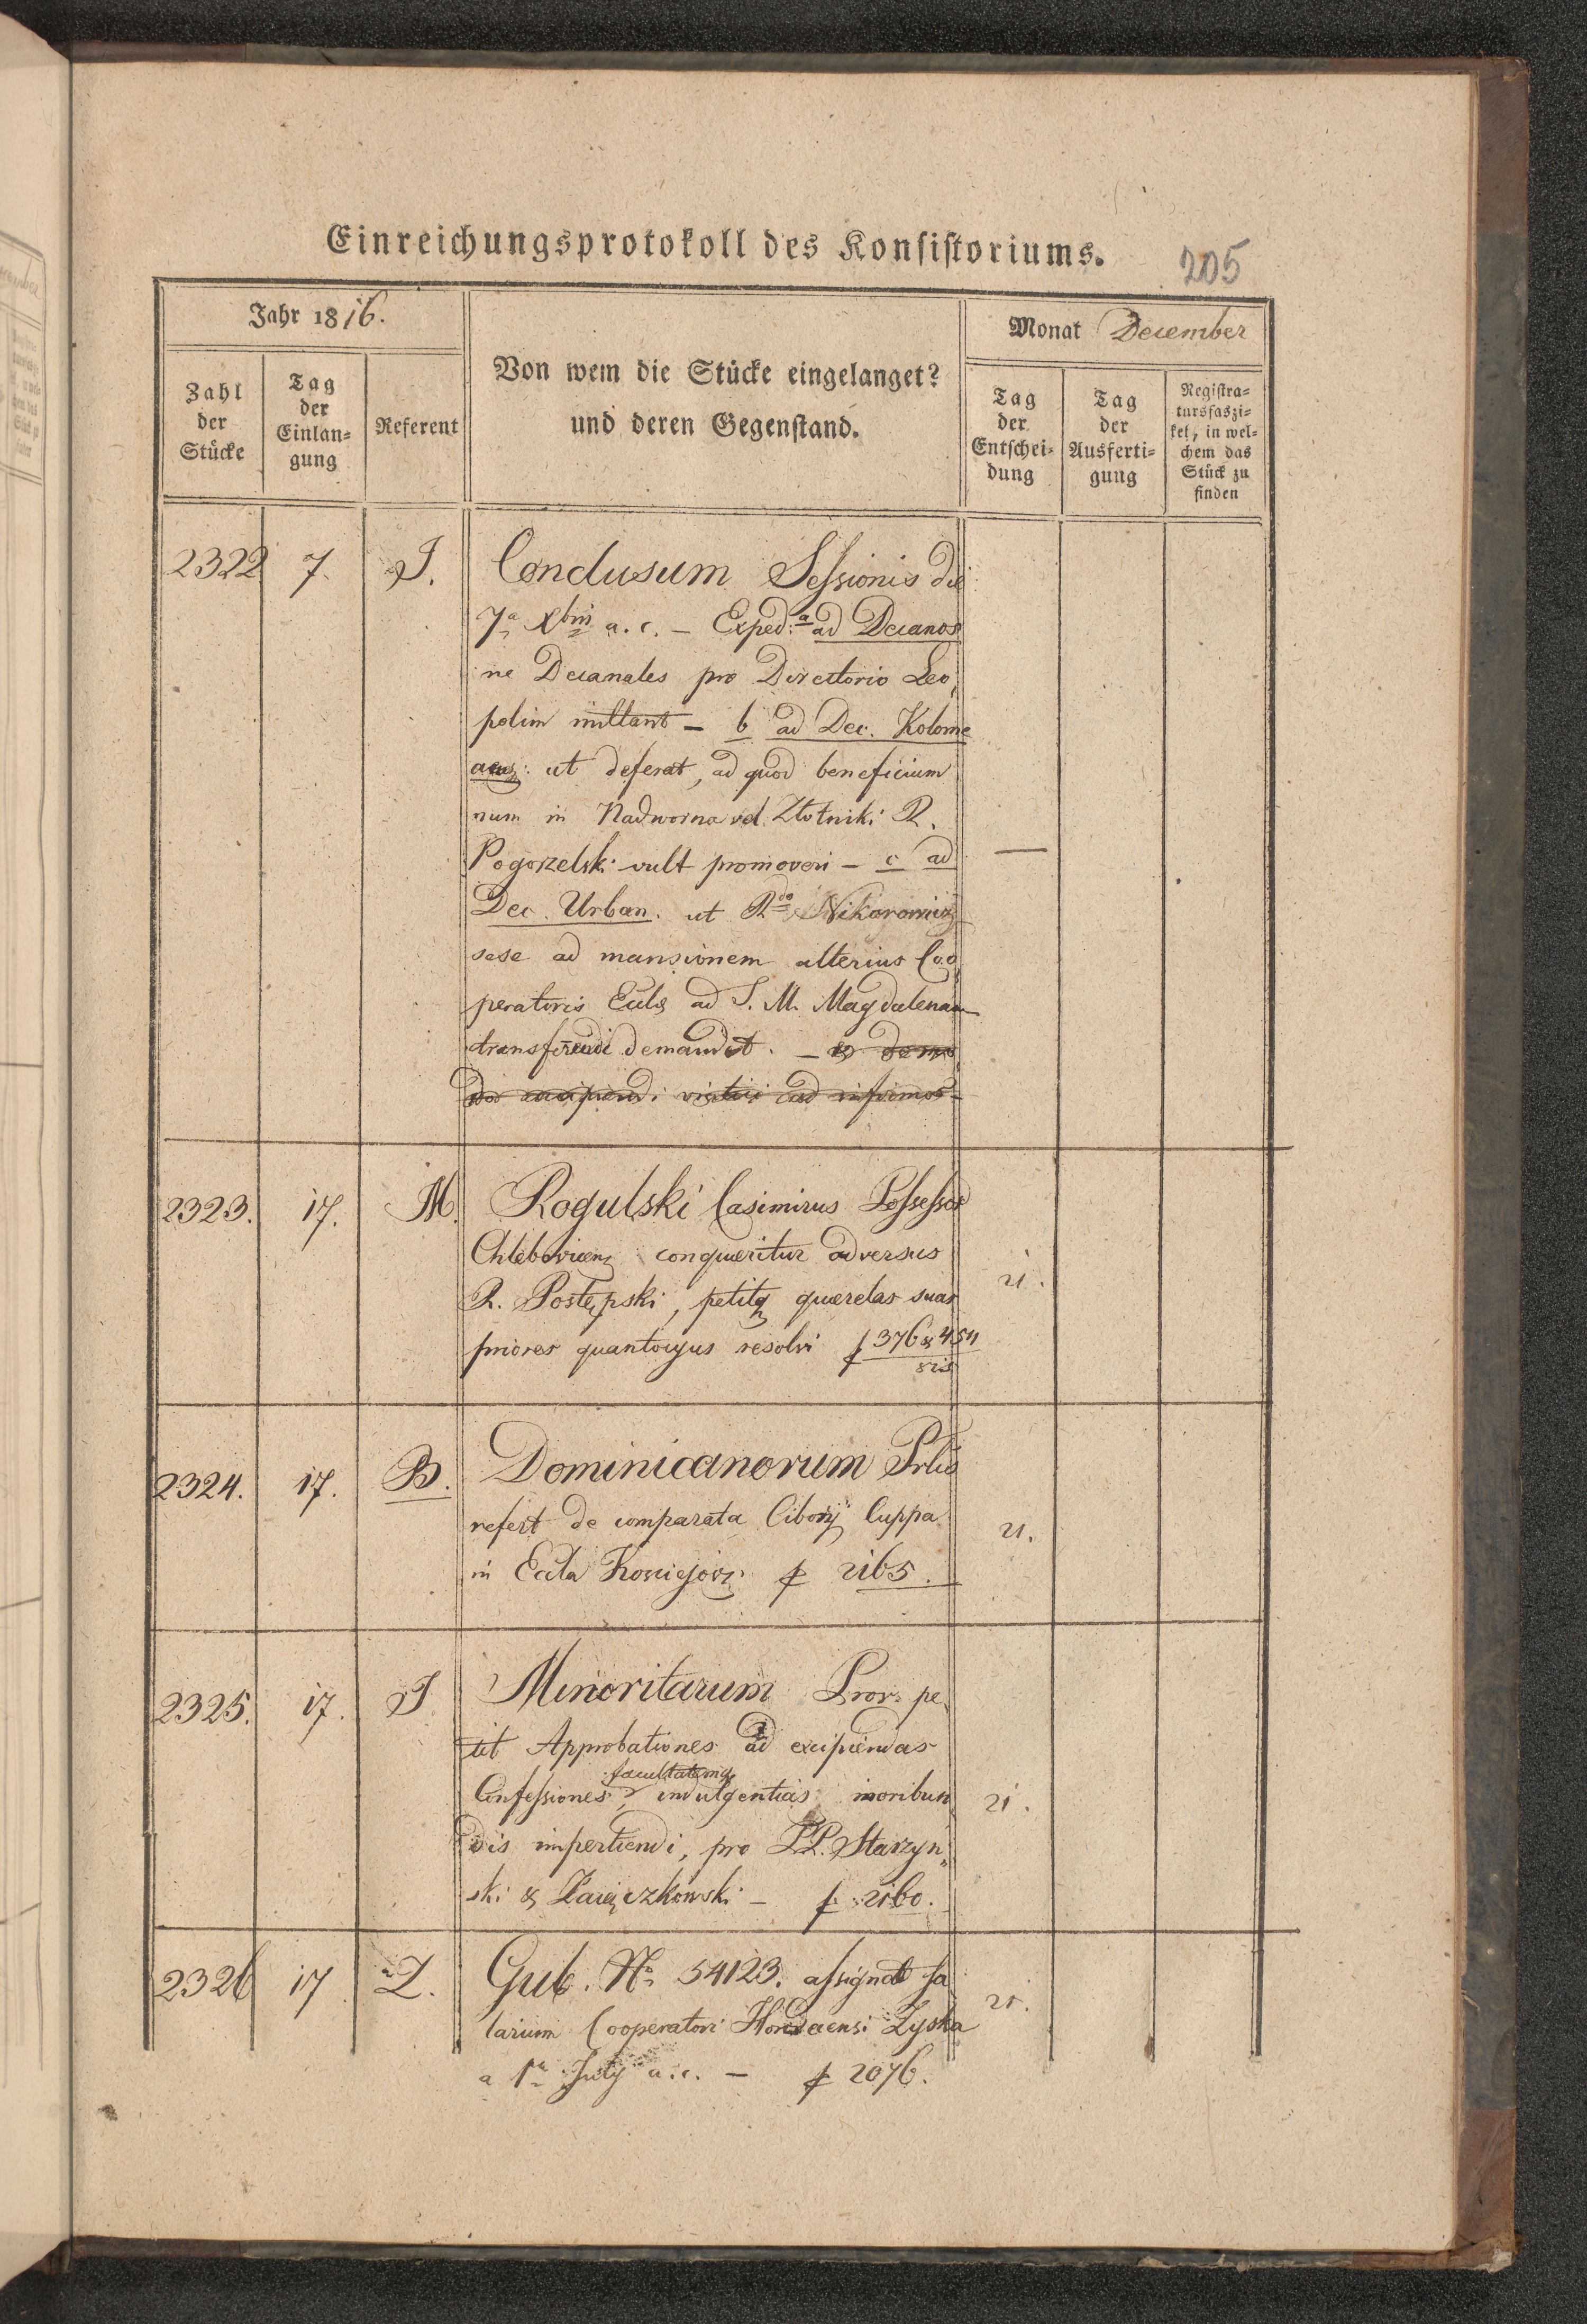 Einreichungsprotokoll des Konsistoriums.
205
Jahr 1816.
Monat December
Zahl der Stücke
Tag der Einlan-gung
Referent
Von wem die Stücke eingelanget?
und deren Gegenstand.
Tag der Entschei-dung
Tag der Ausferti-gung
Registra-tursfaszi-kel, in wel-chem das Stück zu finden
2322 7. J. Conclusum Sessionis die
7a Xbris a. c. – Exped: a ad Decanos
ne Decanales pro Directorio Leo,
polim mittant – b ad Dec. Kolome
: ut deferat, ad quod beneficium
num in Nadworna vel Złotniki R.
Pogorzelski vult promoveri – c ad
Dec. Urban. ut Rdo Nikorowicz
sese ad mansionem alterius Coo,
peratoris Eccl ad S. M. Magdalenam
demandet. – &
ad infirmos –
2323. 17. M. Rogulski Casimirus Possessor
conqueritur adversus
R. Postępski, petitq querelas suas
priores quantocyus resolvi f 376 & 454
21.
2324. 17. B. Dominicanorum Prlis
refert de comparata Ciborij Cuppa
in Eccla f 2165.
21.
2325. 17. J Minoritarum Pror. pe,
tit Approbationes ad excipiendas
facultatemq
Confessiones, indulgentias moribun
dis impertiendi, pro PP. Starzyn,
ski & – f 2160.
21.
2326 17 Z. Gub. No 54123. assignat sa
larium Cooperatori Zyska
a 1a July a. c. – f 2076.
21.